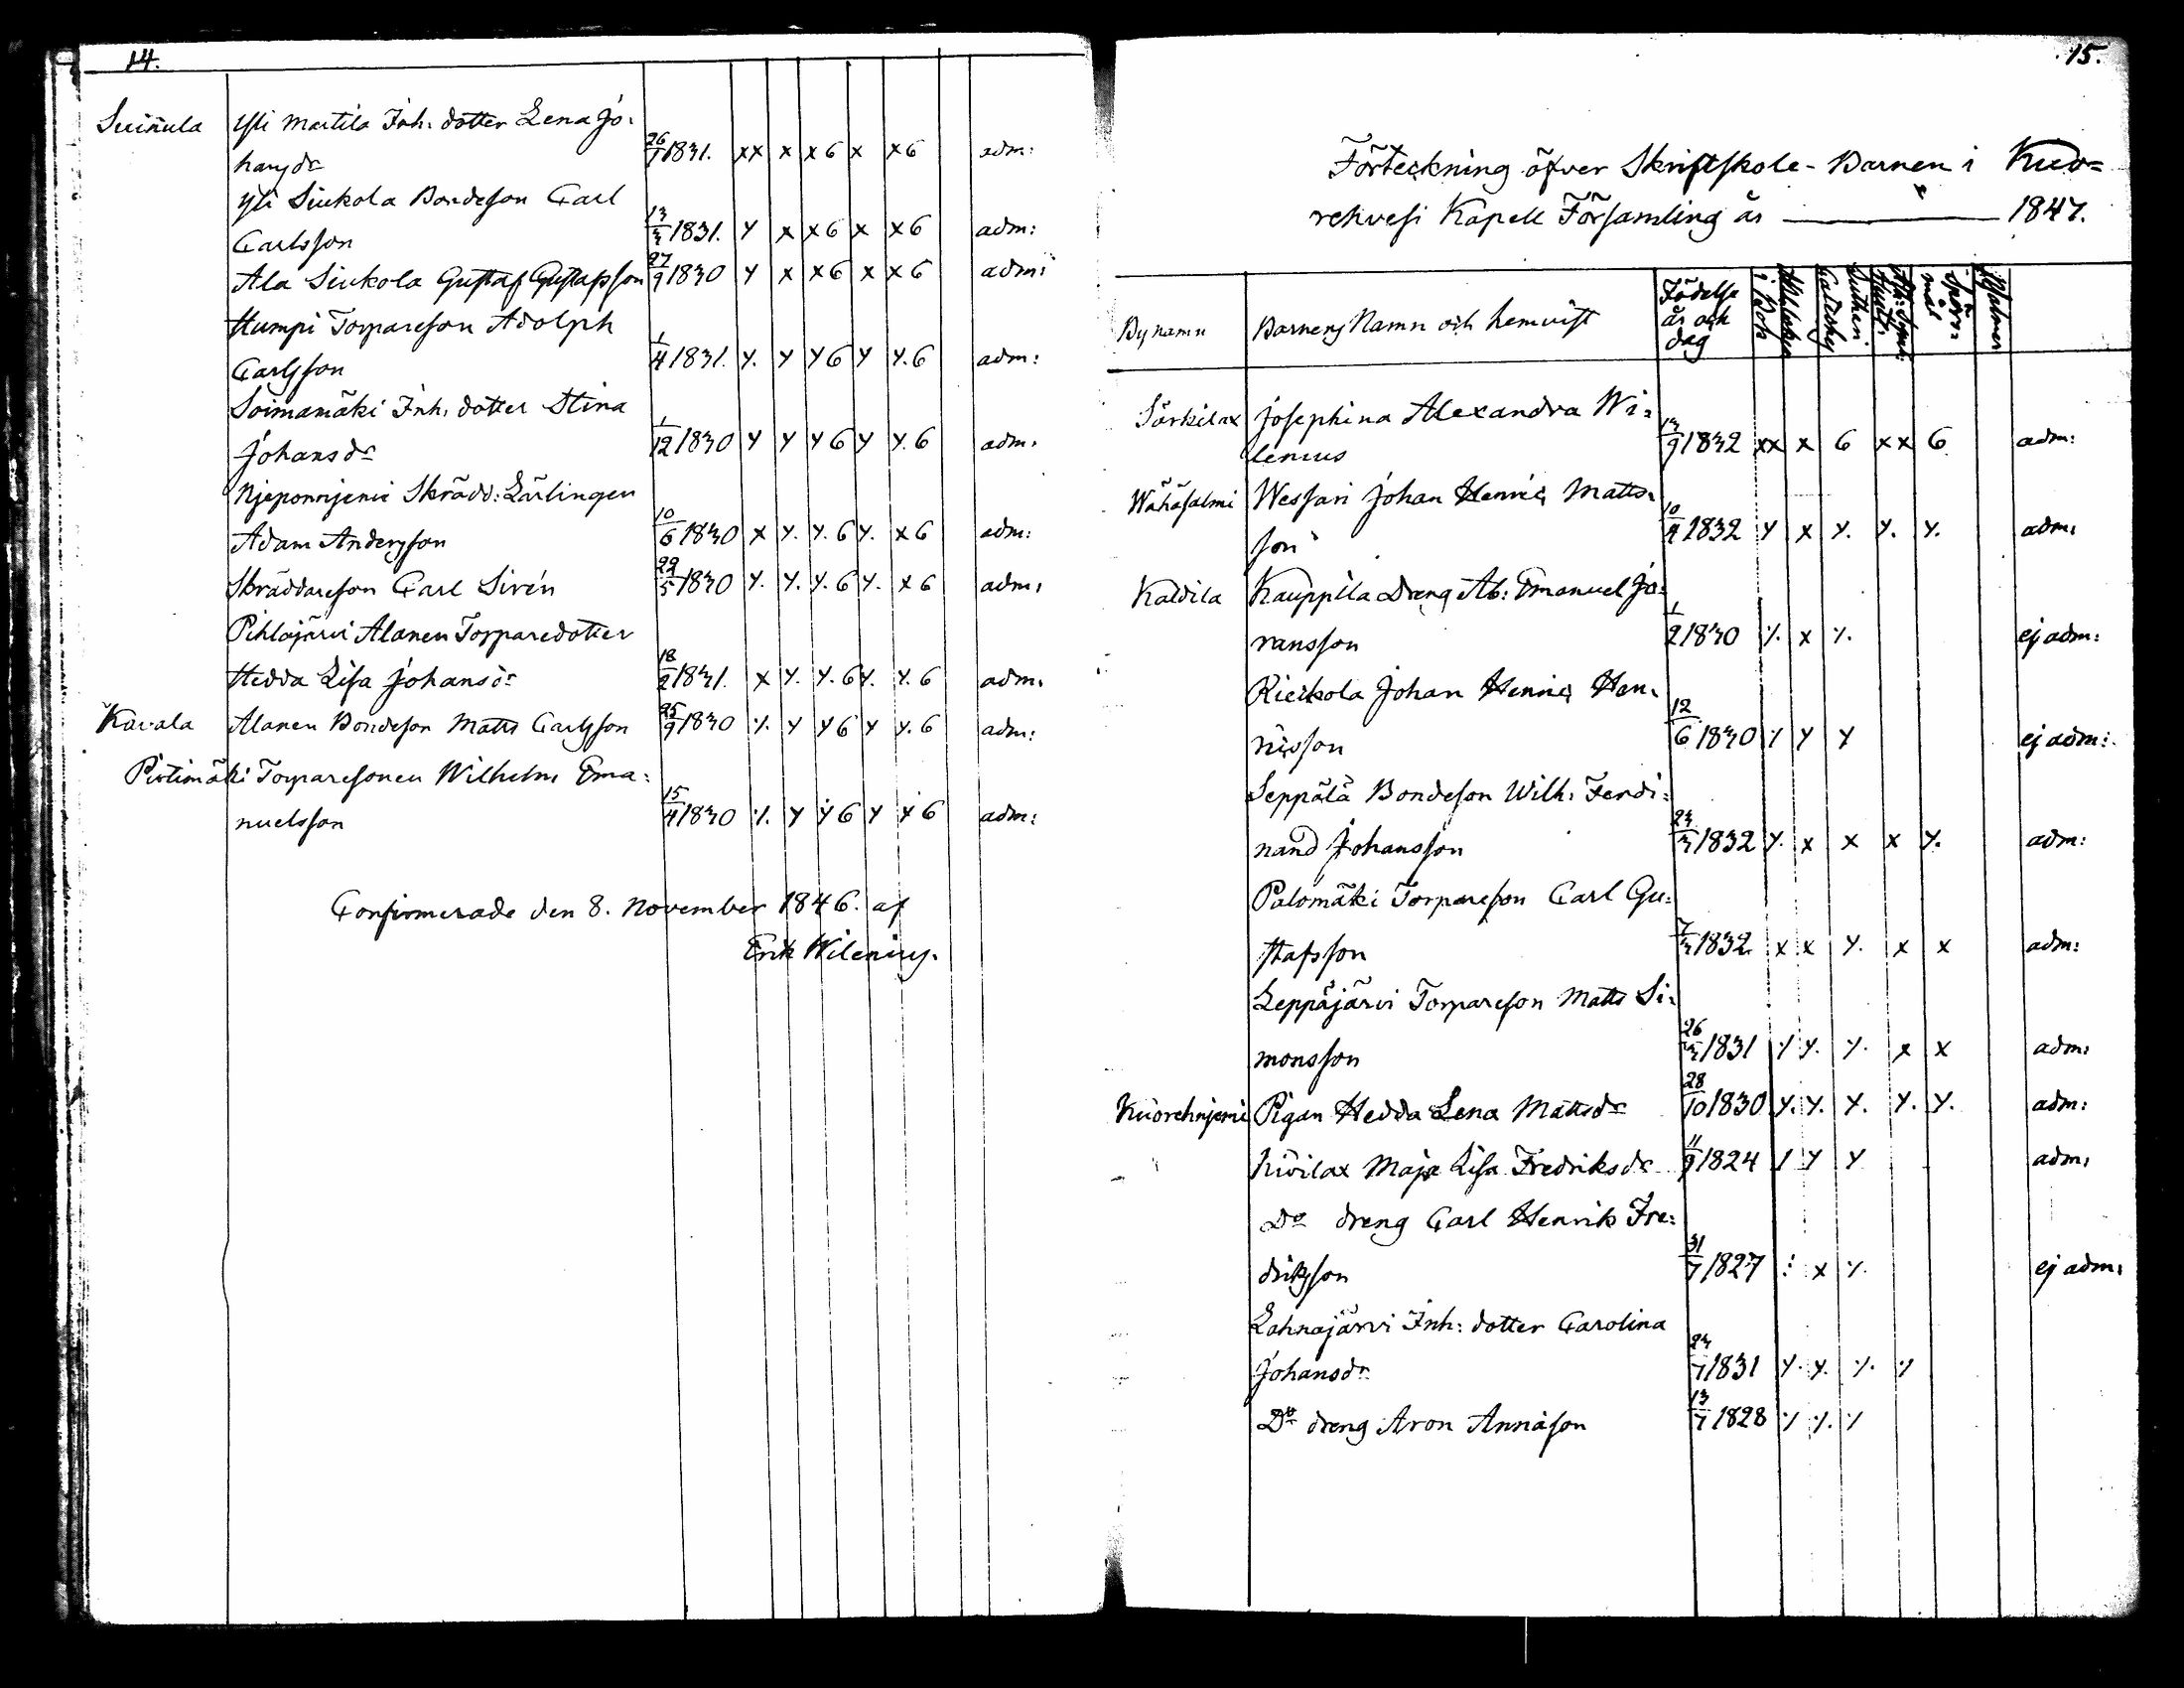 14.
Suinula Yli Martila Inh: dotter Lena Jo:
hansdr 26/1 1831. xx x x 6 x x 6 adm:
Yli Siukola Bondeson Carl
Carlsson 13/3 1831. y x x 6 x x 6 adm:
Ala Siukola Gustaf Gustafsson 27/9 1830 y x x 6 x x 6 adm:
Humpi Torpareson Adolph
Carlsson 1/4 1831. y. y y 6 y y. 6 adm:
Soimamäki Inh: dotter Stina
Johansdr 1/12 1830 y y y 6 y y. 6 adm.
Skrädd: Lärlingen
Adam Andersson 10/6 1830 x y. y. 6 y. x 6 adm:
Skräddareson Carl Sirén 22/5 1830 y. y. y. 6 y. x 6 adm:
Pihlajärvi Alanen Torparedotter
Hedda Lisa Johansdr 18/2 1831. x y. y. 6 y. y. 6 adm.
Kavala Alanen Bondeson Matts Carlsson 25/9 1830 y. y y 6 y y. 6 adm:
Pirtimäki Torparesonen Wilhelm Ema:
nuelsson 15/4 1830 y. y y 6 y y 6 adm:
Confirmerade den 8. November 1846. af
Erik Wilenius.
15.
Förteckning öfver Skriftskole-Barnen i Kuo=
rehvesi Kapell Församling år — 1847.
By namn Barnens Namn och hemvist Födelse år och dag i Bok Lutheri Spörs mål Psalmer
Särkilax Josephina Alexandra Wi=
lenius 13/9 1832 xx x 6 x x 6 adm:
Wähäsalmi Wessari Johan Henric Matts=
son 10/4 1832 y x y. y. y. adm:
Kaldila Kauppila Dreng Ab: Emanuel Jö:
ransson 1/2 1830 y. x y. ej adm:
Rieckola Johan Henric Hen=
ricsson 12/6 1830 y y y ej adm:
Seppälä Bondeson Wilh: Ferdi:
nand Johansson 23/3 1832 y. x x x y. adm:
Palomäki Torpareson Carl Gu:
stafsson 7/3 1832 x x y. x x adm:
Leppäjärvi Torpareson Matts Si=
monsson 26/3 1831 y y. y. x x adm:
Kuorehnjemi Pigan Hedda Lena Mattsdr 28/10 1830 y. y. y. y. y. adm:
Kivilax Maja Lisa Fredriksdr 11/9 1824 y y y adm:
Do dreng Carl Henrik Fre:
driksson 31/7 1827 : x y. ej adm:
Lahnajärvi Inh: dotter Carolina
Johansdr 23/7 1831 y. y. y. y
Do dreng Aron Annäson 13/7 1828 y y. y